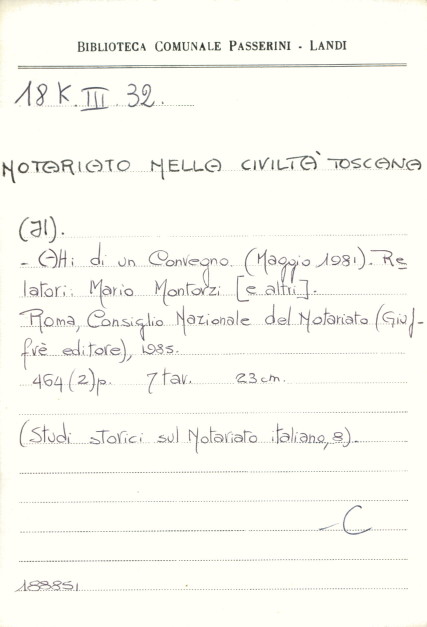 BIBLIOTECA COMUNALE PASSERINI - LANDI
18 K. III. 32.
NOTARIATO NELLA CIVILTA' TOSCANA
(Il).
- Atti di un Convegno. (Maggio 1981). Re
latori: Mario Montorzi [e altri].
Roma, Consiglio Nazionale del Notariato (Giuf-
frè editore), 1985.
464 (2) p. 7 tav. 23 cm.
(Studi storici sul Notariato italiano, 8).
- C
188851